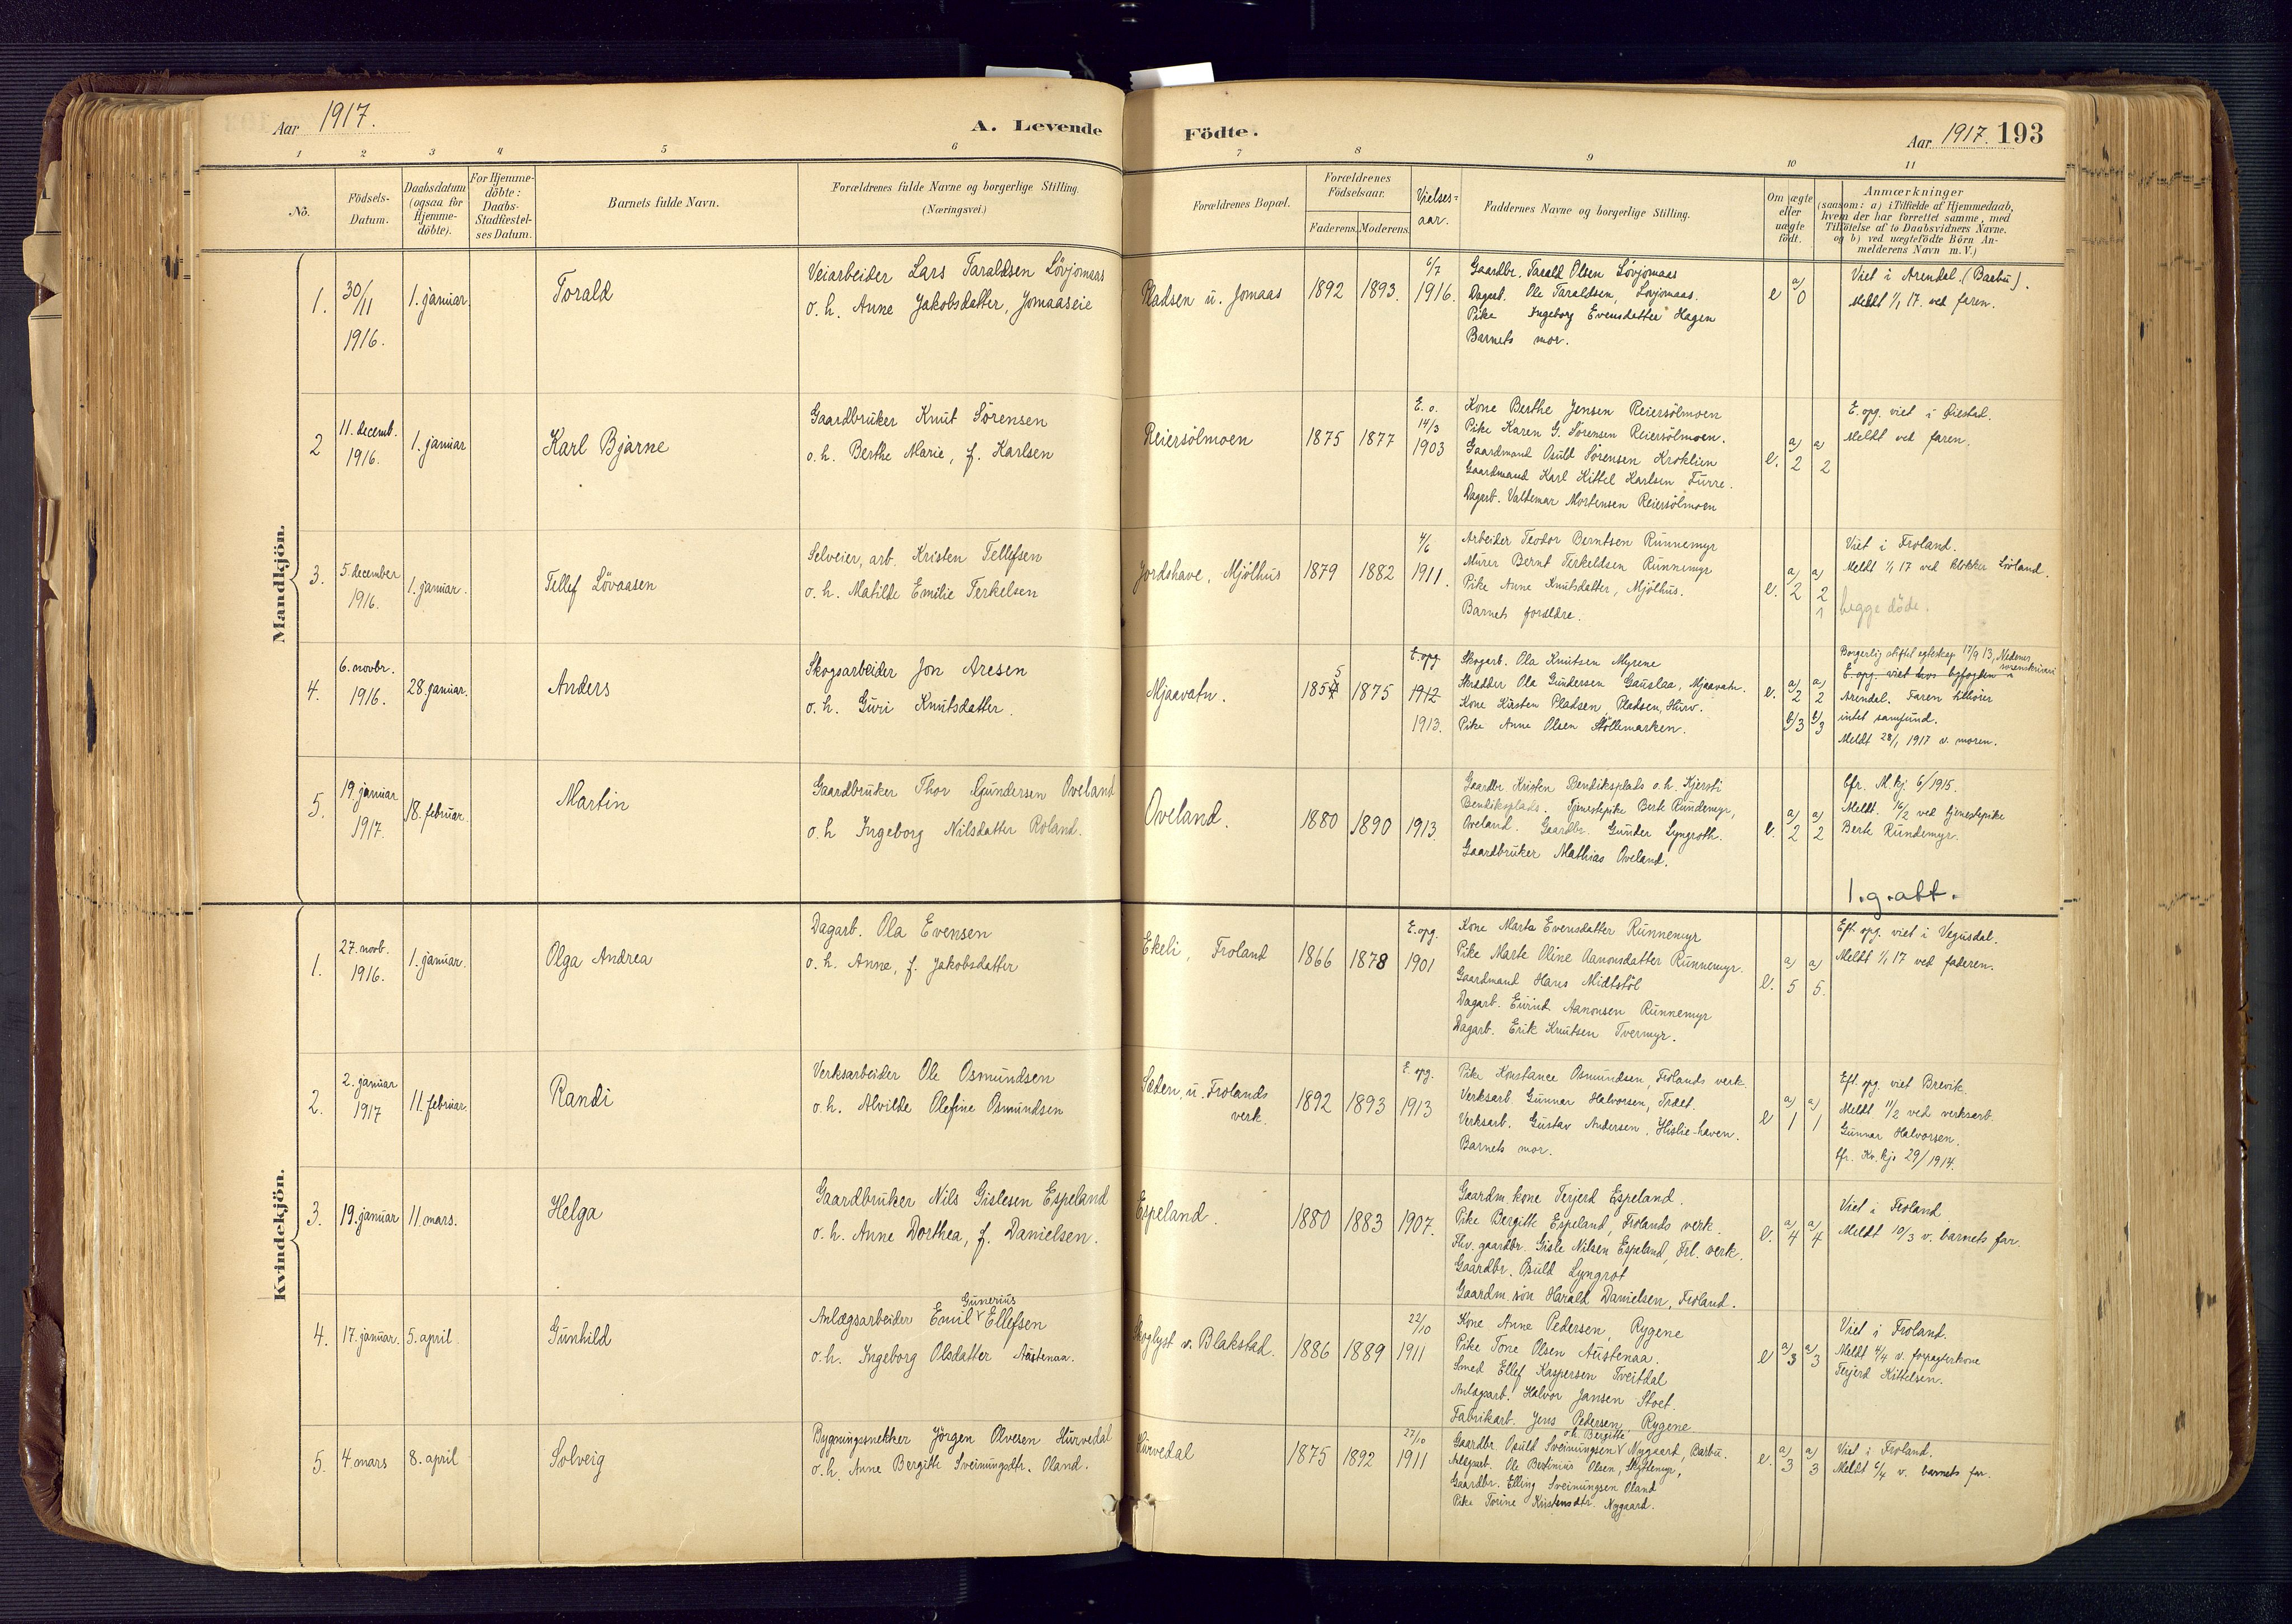 Aar 1917.
A. Levende
Födte.
Aar 1917. 193
1 2 3 4 5 6 7 8 9 10 11
No.
Födsels-
Datum.
Daabsdatum
(ogsaa for
Hjemme-
döbte).
For Hjemme-
döbte:
Daabs-
Stadfæstel-
ses Datum.
Barnets fulde Navn.
Forældrenes fulde Navne og borgerlige Stilling.
(Næringsvei.)
Forældrenes Bopæl.
Forældrenes
Födselsaar.
Faderens. Moderens.
Vielses-
aar.
Faddernes Navne og borgerlige Stilling.
Om ægte
eller
uægte
födt.
Anmærkninger
(saasom: a) i Tilfælde af Hjemmedaab,
hvem der har forrettet samme, med
Tilföielse af to Daabsvidners Navne.
og b) ved uægtefödte Börn An-
melderens Navn m. V.)
Mandkjön.
1.
30/11
1916.
1. januar
Torald
Veiarbeider Lars Taraldsen Lövjomaas
o. h. Anne Jakobsdatter, Jomaaseie
Pladsen u. Jomaas
1892 1893.
6/7
1916.
Gaardbr. Tarald Olsen Lövjomaas
Dagarb. Ole Taraldsen, Lövjomaas.
Pike Ingeborg Evensdatter Hagen
Barnets mor.
e a/0
Viet i Arendal. (Barbu).
Meldt 1/1 17. ved faren.
2
11. decemb.
1916.
1. januar
Karl Bjarne
Gaardbruker Knut Sörensen
o. h. Berthe Marie, f. Karlsen
Reiersölmoen
1875 1877
E. o.
14/3
1903
Kone Berthe Jensen Reiersölmoen
Pike Karen G. Sörensen Reiersölmoen.
Gaardmand Osuld Sörensen Kroklien
Gaardmand Karl Kittel Karlsen Furre.
Dagarb. Valdemar Mortensen Reiersölmoen
e. a/2 a/2
E. opg. viet i Öiestad.
Meldt ved faren.
3.
5. december
1916.
1. januar.
Tellef Lövaasen
Selveier, arb. Kristen Tellefsen
o. h. Matilde Emilie Terkelsen
Jordshave, Mjölhus
1879 1882
4/6
1911.
Arbeider Teodor Berntsen Runnemyr
Murer Bernt Terkeldsen Runnemyr
Pike Anne Knutsdatter, Mjölhus.
Barnets forældre.
e. a/2 a/2
1
Viet i Froland.
Meldt 1/1 17 ved klokker Lioland.
begge döde.
4.
6. novbr.
1916.
28. januar.
Anders
Skogsarbeider Jon Aresen
o. h. Guri Knutsdatter.
Mjaavatn.
1854 5 1875
E. opg.
1912
1913.
Skogarb. Ola Knutsen Myrene
Skrædder Ola Gundersen Gauslaa, Mjaavatn.
Kone Kirsten Pladsen, Pladsen, Hurv.
Pike Anne Olsen Stöllemarken.
e. a/2 a/2
b/3 b/3
Borgerlig stiftet egteskap 17/9 13, Nedenes
sorenskriveri
E. opg. viet hos byfogden i
Arendal. Faren tilhörer
intet samfund.
Meldt 28/1 1917 v. moren.
5.
19. januar
1917.
18. februar.
Martin
Gaardbruker Thor Gundersen Oveland
o. h Ingeborg Nilsdatter Roland.
Oveland.
1880 1890 1913.
Gaardbr Kristen Bendiksplads o. h. Kjersti
Bendiksplads. Tjenestepike Berte Rundemyr,
Oveland. Gaardbr. Gunder Lyngroth.
Gaardbruker Mathias Oveland.
e. a/2 a/2
Cfr. M. kj 6/1915.
Meldt. 16/2 ved tjenestepike
Berte Rundemyr.
1.g.att.
Kvindekjön.
1.
27. novb.
1916.
1. januar.
Olga Andrea
Dagarb. Ola Evensen
o. h. Anne, f. Jakobsdatter
Ekeli, Froland
1866 1878
E. opg.
1901
Kone Marta Evensdatter Runnemyr
Pike Marte Oline Aanonsdatter Runnemyr.
Gaardmand Hans Midtstöl
Dagarb. Eivind Aanonsen Runnemyr
Dagarb. Erik Knutsen Tvermyr.
e. a/5 a/5.
Eft. opg. viet i Vegusdal.
Meldt 1/1 17 ved faderen.
2.
2. januar
1917
11. februar.
Randi
Verksarbeider Ole Osmundsen
o. h. Alvilde Olefine Osmundsen
Sæden, u. Frolands
verk.
1892 1893
E. opg.
1913
Pike Konstance Osmundsen, Frolands verk.
Verksarb. Gunnar Halvorsen, Træet.
Verksarb. Gustav Andersen, Hislie-haven.
Barnets mor.
e a/1 a/1
Eft. opg. viet Brevik.
Meldt 11/2 ved verksarb.
Gunnar Halvorsen.
Cfr. Kv. kj. 29/1914.
3.
19. januar
11. mars.
Helga
Gaardbruker Nils Gislesen Espeland
o. h. Anne Dorthea, f. Danielsen.
Espeland.
1880 1883 1907.
Gaardm. kone Terjerd Espeland.
Pike Bergitte Espeland, Frolands verk
Fhv. gaardbr. Gisle Nilsen Espeland, Frl. verk.
Gaardbr. Osuld Lyngrot
Gaardm. sön Harald Danielsen, Froland.
e. a/4 a/4
Viet i Froland
Meldt 10/3 v. barnets far.
4.
17. januar.
5. april
Gunhild
Gunerius
Anlægsarbeider Emil Ellefsen
o. h. Ingeborg Olsdatter Austenaa.
Skoglyst v. Blakstad.
1886 1889
22/10
1911
Kone Anne Pedersen, Rygene
Pike Tone Olsen Austenaa.
Smed Ellef Kaspersen Tveitdal
Anlægsarb. Halvor Jansen Stoet.
Fabrikarb. Jens Pedersen, Rygene
e a/3 a/3
Viet i Froland.
Meldt 4/4 v. forpagterkone
Terjerd Kittelsen.
5.
4. mars
8. april
Solveig
Bygningssnekker Jörgen Olvesen Hurvedal
o. h. Anne Bergitte Sveinungsdtr. Oland.
Hurvedal
1875 1892
27/10
1911
o. h. Bergitte
Gaardbr. Osuld Sveinungsen Nygaard, Barbu.
Anlægsarb. Ole Bertinius Olsen, Skyttemyr,
Gaardbr. Elling Sveinungsen Oland
Pike Torine Kristensdtr. Nygaard.
e. a/3 a/3
Viet i Froland.
Meldt 6/4 v. barnets far.